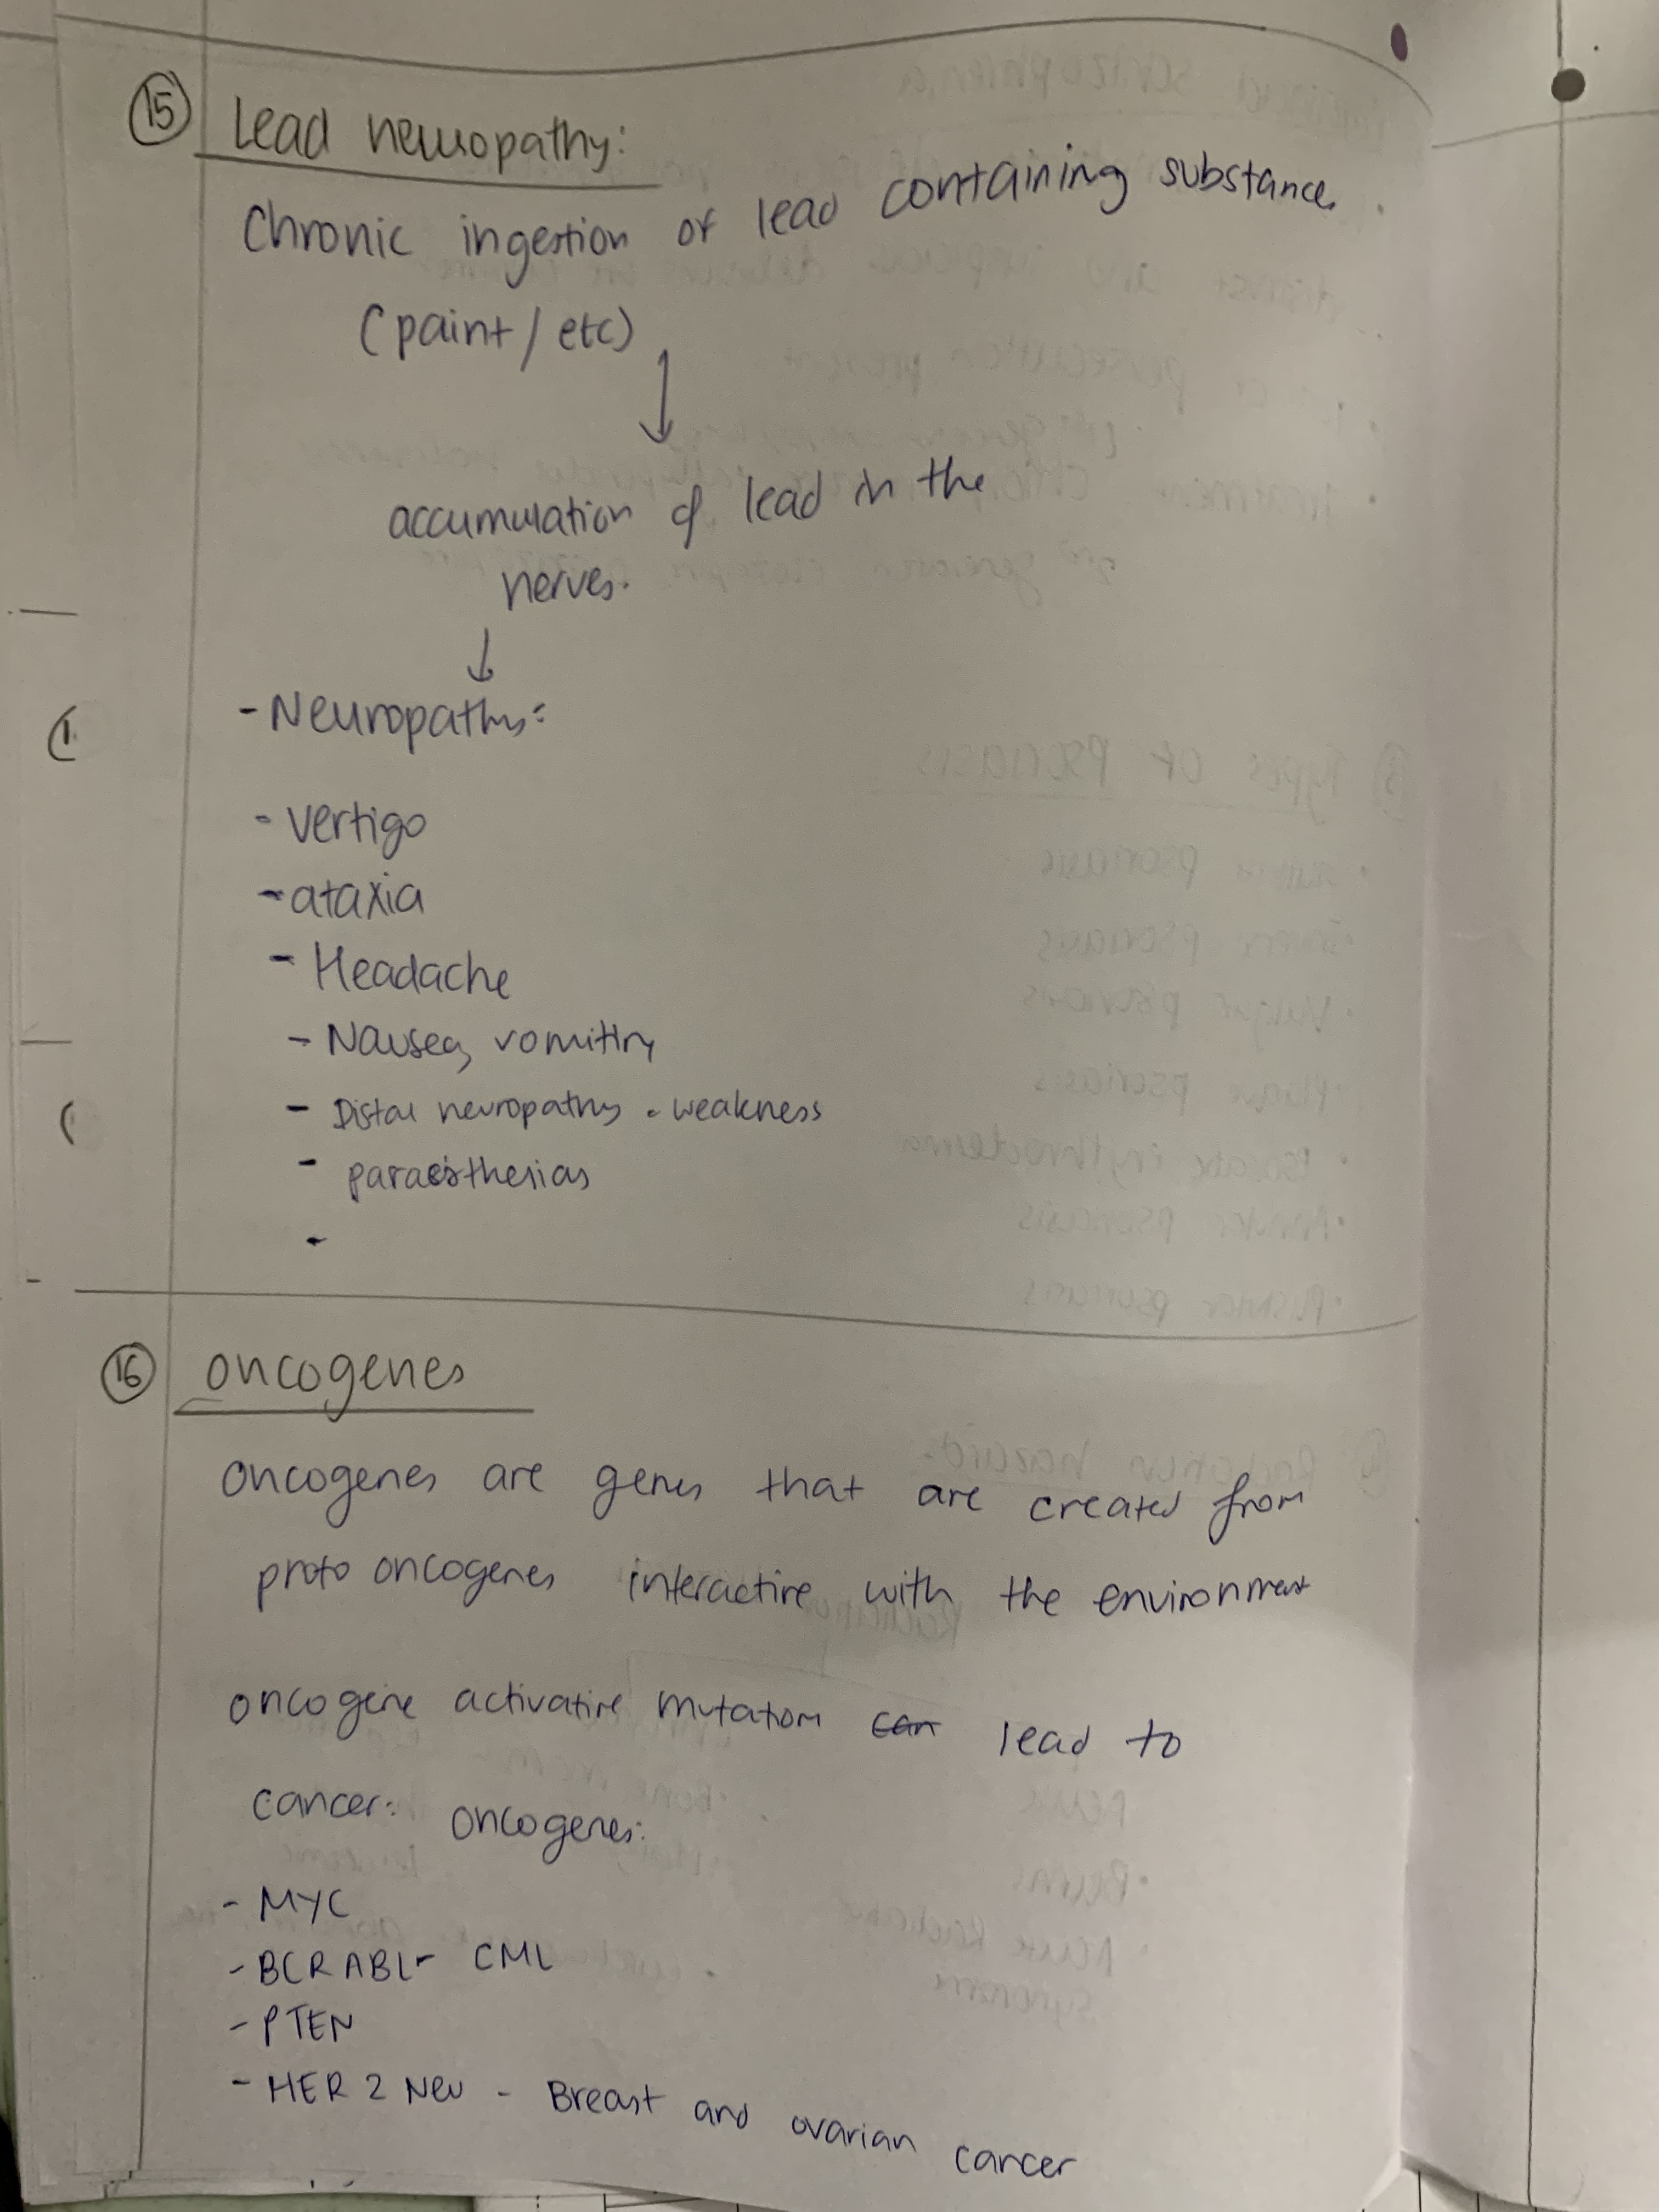 15 Lead neuropathy:
Chronic ingestion of lead containing substance.
(paint / etc)
↓
accumulation of lead in the
nerves.
↓
- Neuropathy:
- vertigo
- ataxia
- Headache
- Nausea, vomiting
- Distal neuropathy - weakness
- paraesthesias
-
16 oncogenes
oncogenes are genes that are created from
proto oncogenes interactive with the environment
oncogene activative mutation can lead to
cancer: oncogenes:
- MYC
- BCR ABL - CML
- PTEN
- HER 2 Neu - Breast and ovarian cancer